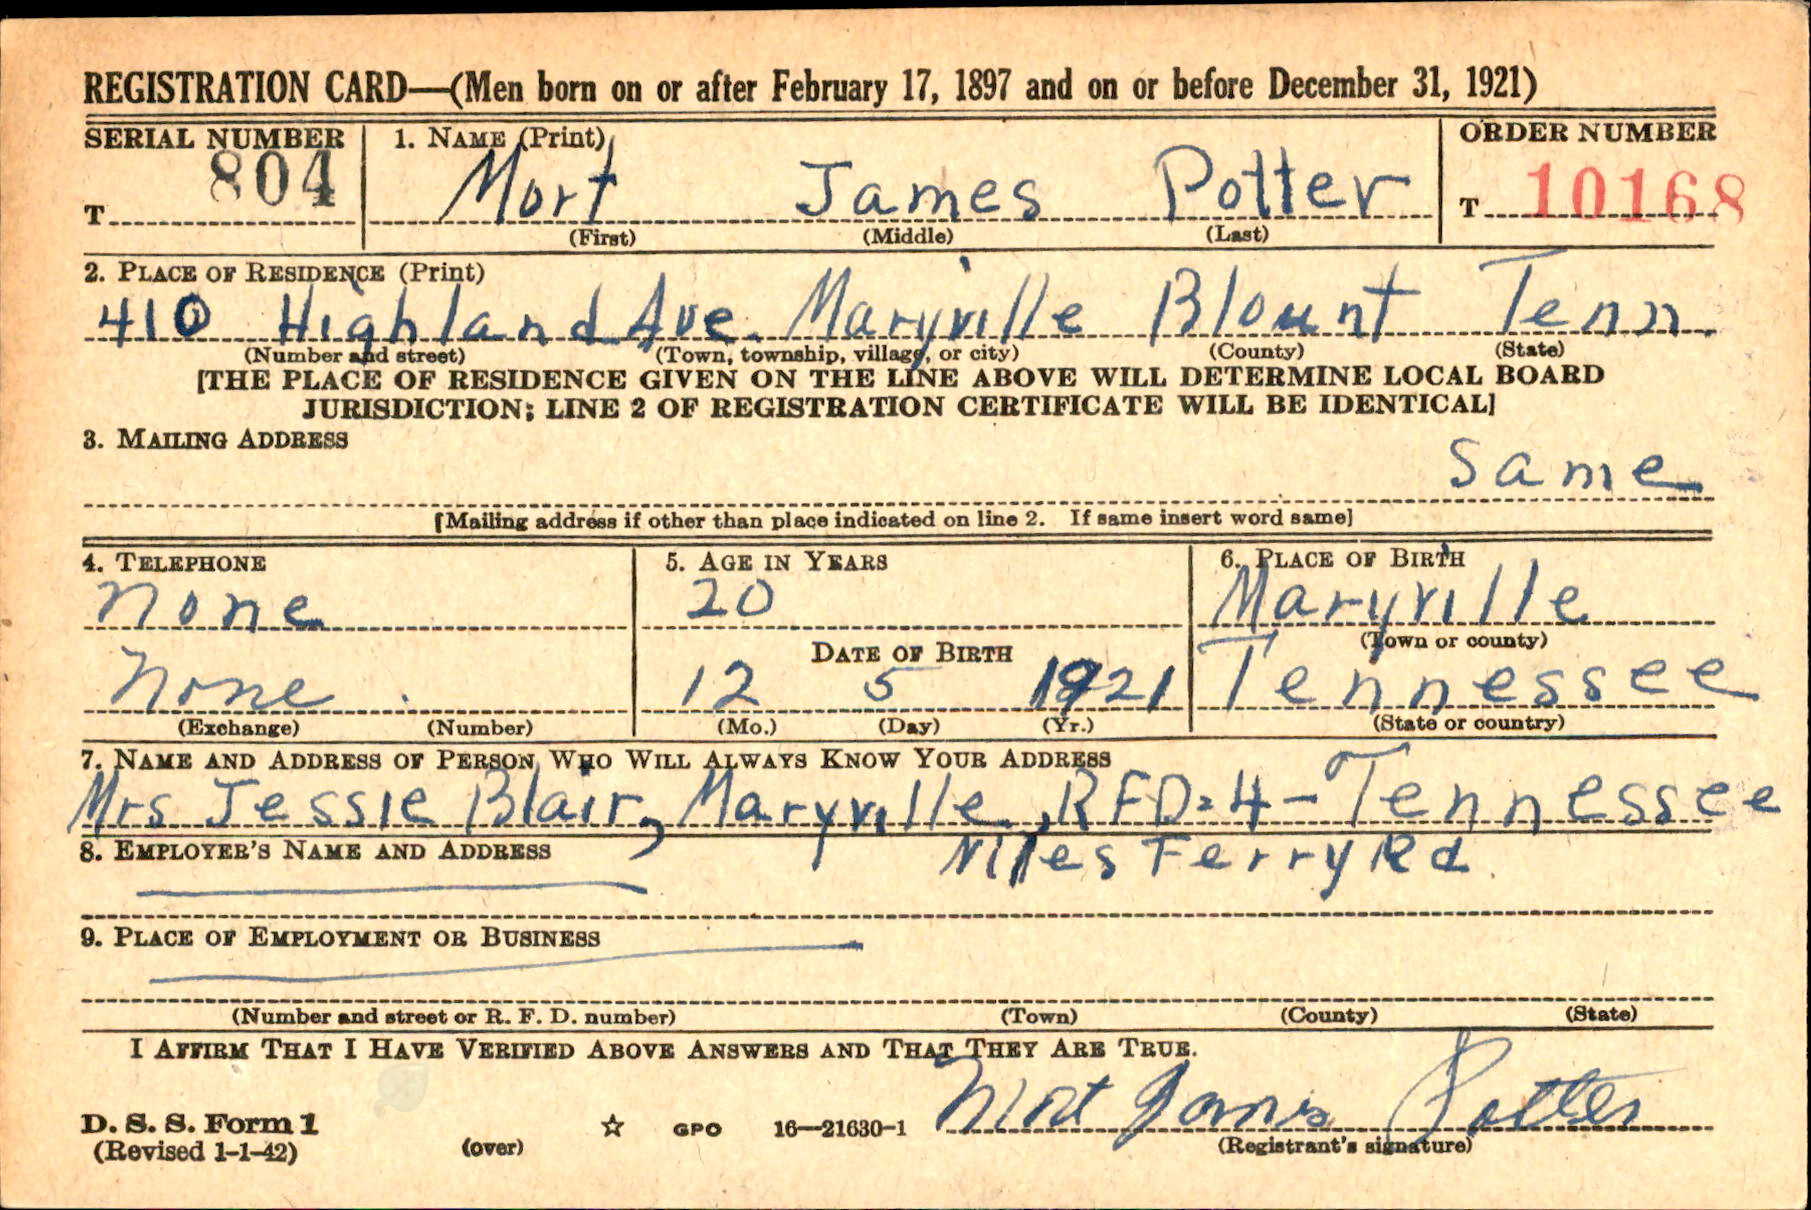 REGISTRATION CARD—(Men born on or after February 17, 1897 and on or before December 31, 1921)
SERIAL NUMBER 1. NAME (Print) ORDER NUMBER
T 804 Mort James Potter T 10168
(First) (Middle) (Last)
2. PLACE OF RESIDENCE (Print)
410 Highland Ave. Maryville Blount Tenn.
(Number and street) (Town, township, village, or city) (County) (State)
[THE PLACE OF RESIDENCE GIVEN ON THE LINE ABOVE WILL DETERMINE LOCAL BOARD
JURISDICTION; LINE 2 OF REGISTRATION CERTIFICATE WILL BE IDENTICAL]
3. MAILING ADDRESS
Same
[Mailing address if other than place indicated on line 2. If same insert word same]
4. TELEPHONE 5. AGE IN YEARS 6. PLACE OF BIRTH
None 20 Maryville
DATE OF BIRTH (Town or county)
None 12 5 1921 Tennessee
(Exchange) (Number) (Mo.) (Day) (Yr.) (State or country)
7. NAME AND ADDRESS OF PERSON WHO WILL ALWAYS KNOW YOUR ADDRESS
Mrs Jessie Blair, Maryville, RFD=4-Tennessee
8. EMPLOYER'S NAME AND ADDRESS Niles Ferry Rd.
9. PLACE OF EMPLOYMENT OR BUSINESS
(Number and street or R. F. D. number) (Town) (County) (State)
I AFFIRM THAT I HAVE VERIFIED ABOVE ANSWERS AND THAT THEY ARE TRUE.
D. S. S. Form 1 ☆ GPO 16—21630-1 Mort James Potter
(Revised 1-1-42) (over) (Registrant's signature)